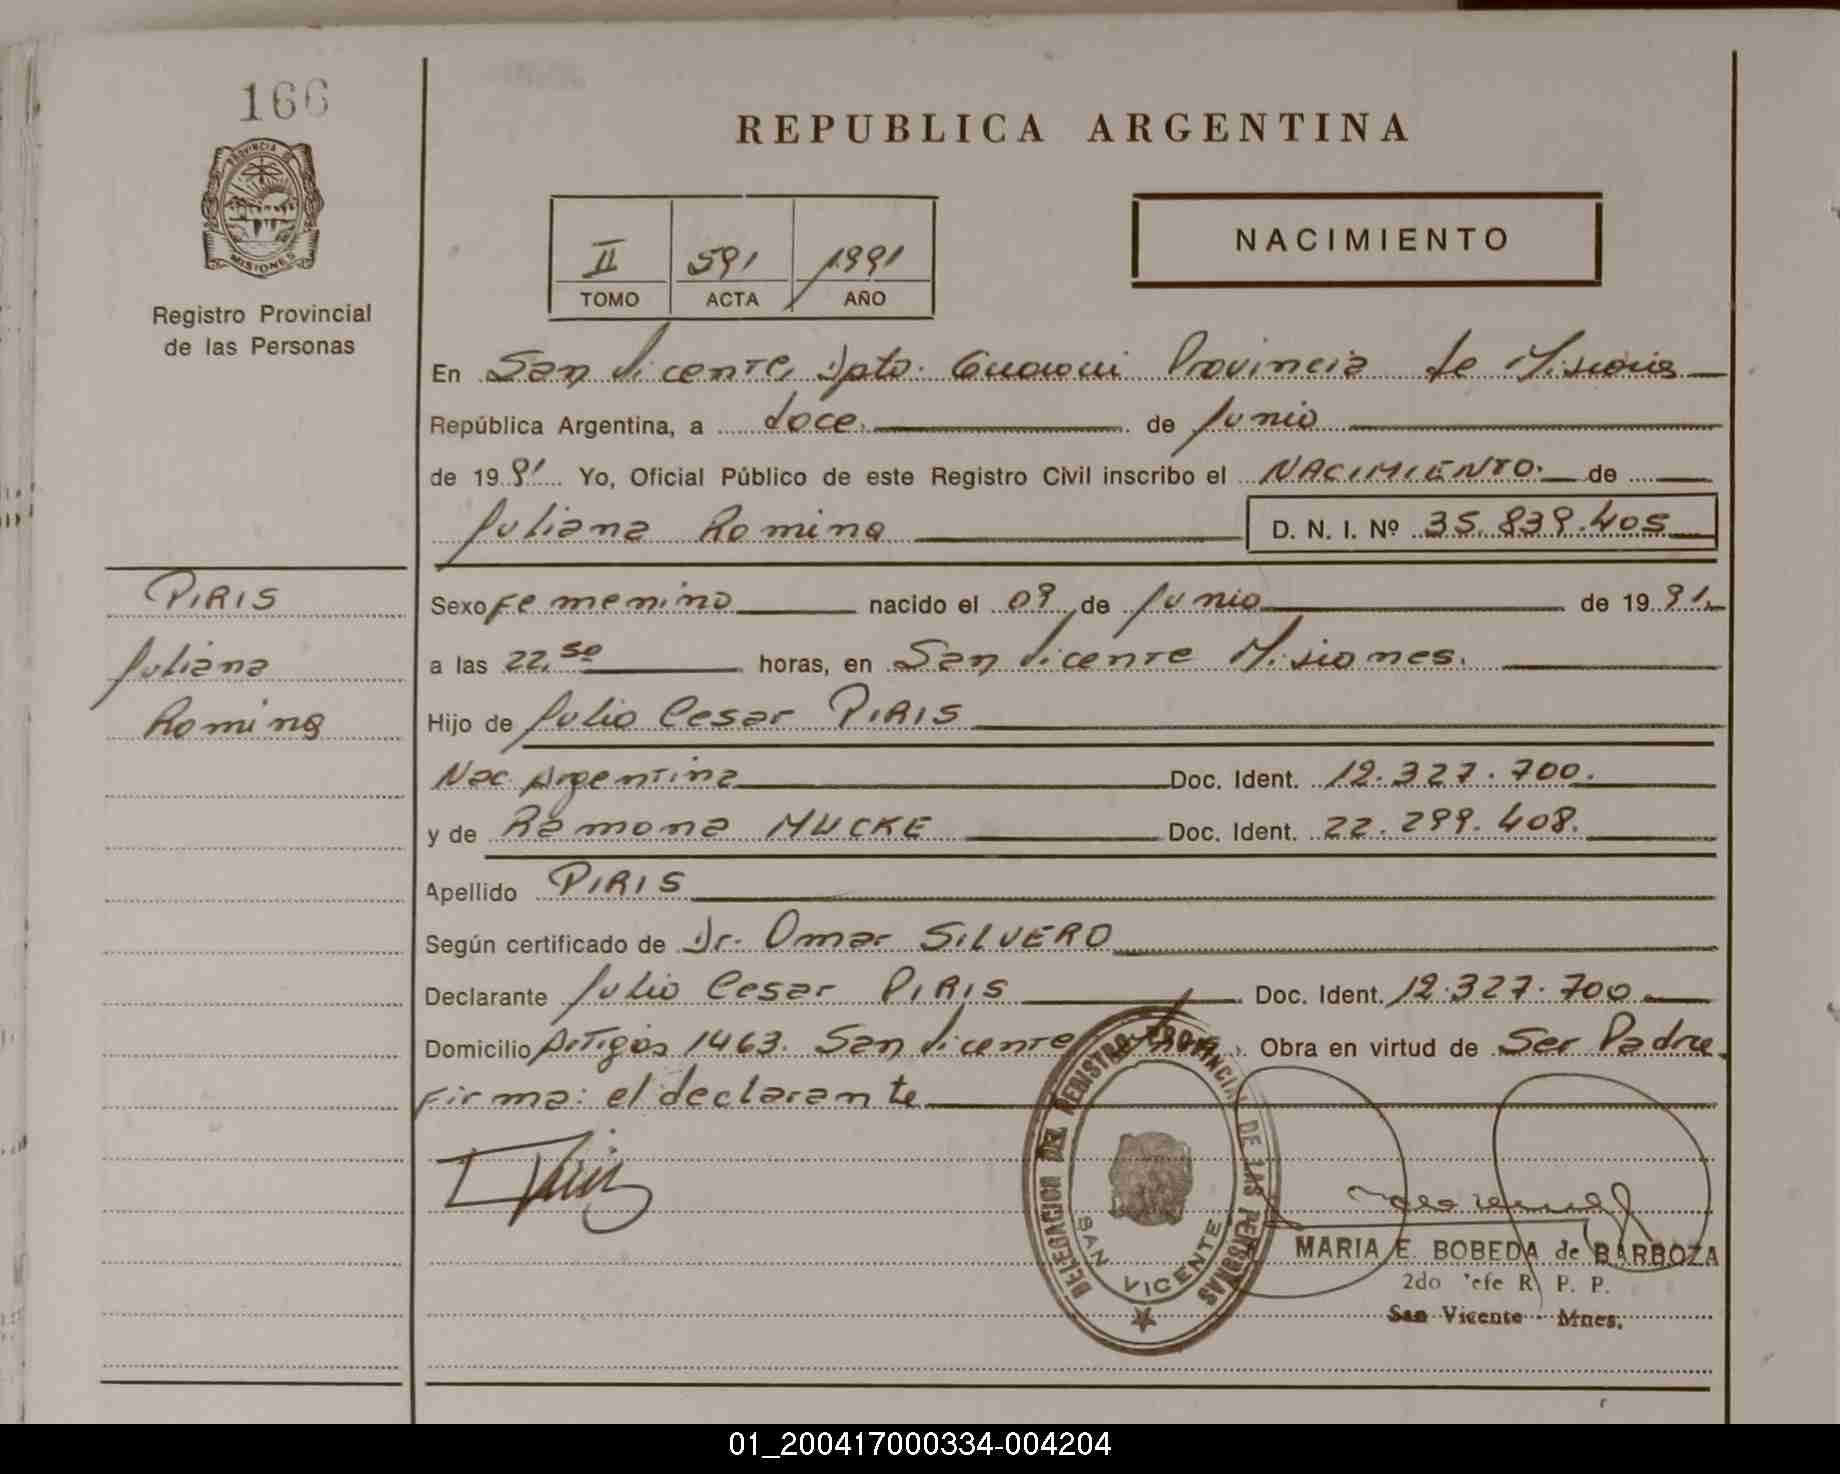 166
REPUBLICA ARGENTINA
PROVINCIA DE
MISIONES
Registro Provincial
de las Personas
II 591 1991
TOMO ACTA AÑO
NACIMIENTO
En San Vicente, Dpto. Guarani Provincia de Misiones
República Argentina, a doce. de Junio
de 1991 Yo, Oficial Público de este Registro Civil inscribo el NACIMIENTO. de
Juliana Romina D. N. I. Nº 35.839.405
PIRIS
Juliana
Romina
Sexo Femenino nacido el 09 de Junio de 1991.
a las 22,50 horas, en San Vicente Misiones.
Hijo de Julio Cesar PIRIS
Nac. Argentina Doc. Ident. 12.327.700.
y de Ramona MUCKE Doc. Ident. 22.299.408.
Apellido PIRIS
Según certificado de Dr. Omar SILVERO
Declarante Julio Cesar PIRIS Doc. Ident. 12.327.700
Domicilio Artigas 1463. San Vicente Obra en virtud de Ser Padre.
Firma: el declarante
DELEGACION DEL REGISTRO PROVINCIAL DE LAS PERSONAS
SAN VICENTE
MARIA E. BOBEDA de BARBOZA
2do Jefe R. P. P.
San Vicente - Mnes.
01_200417000334-004204